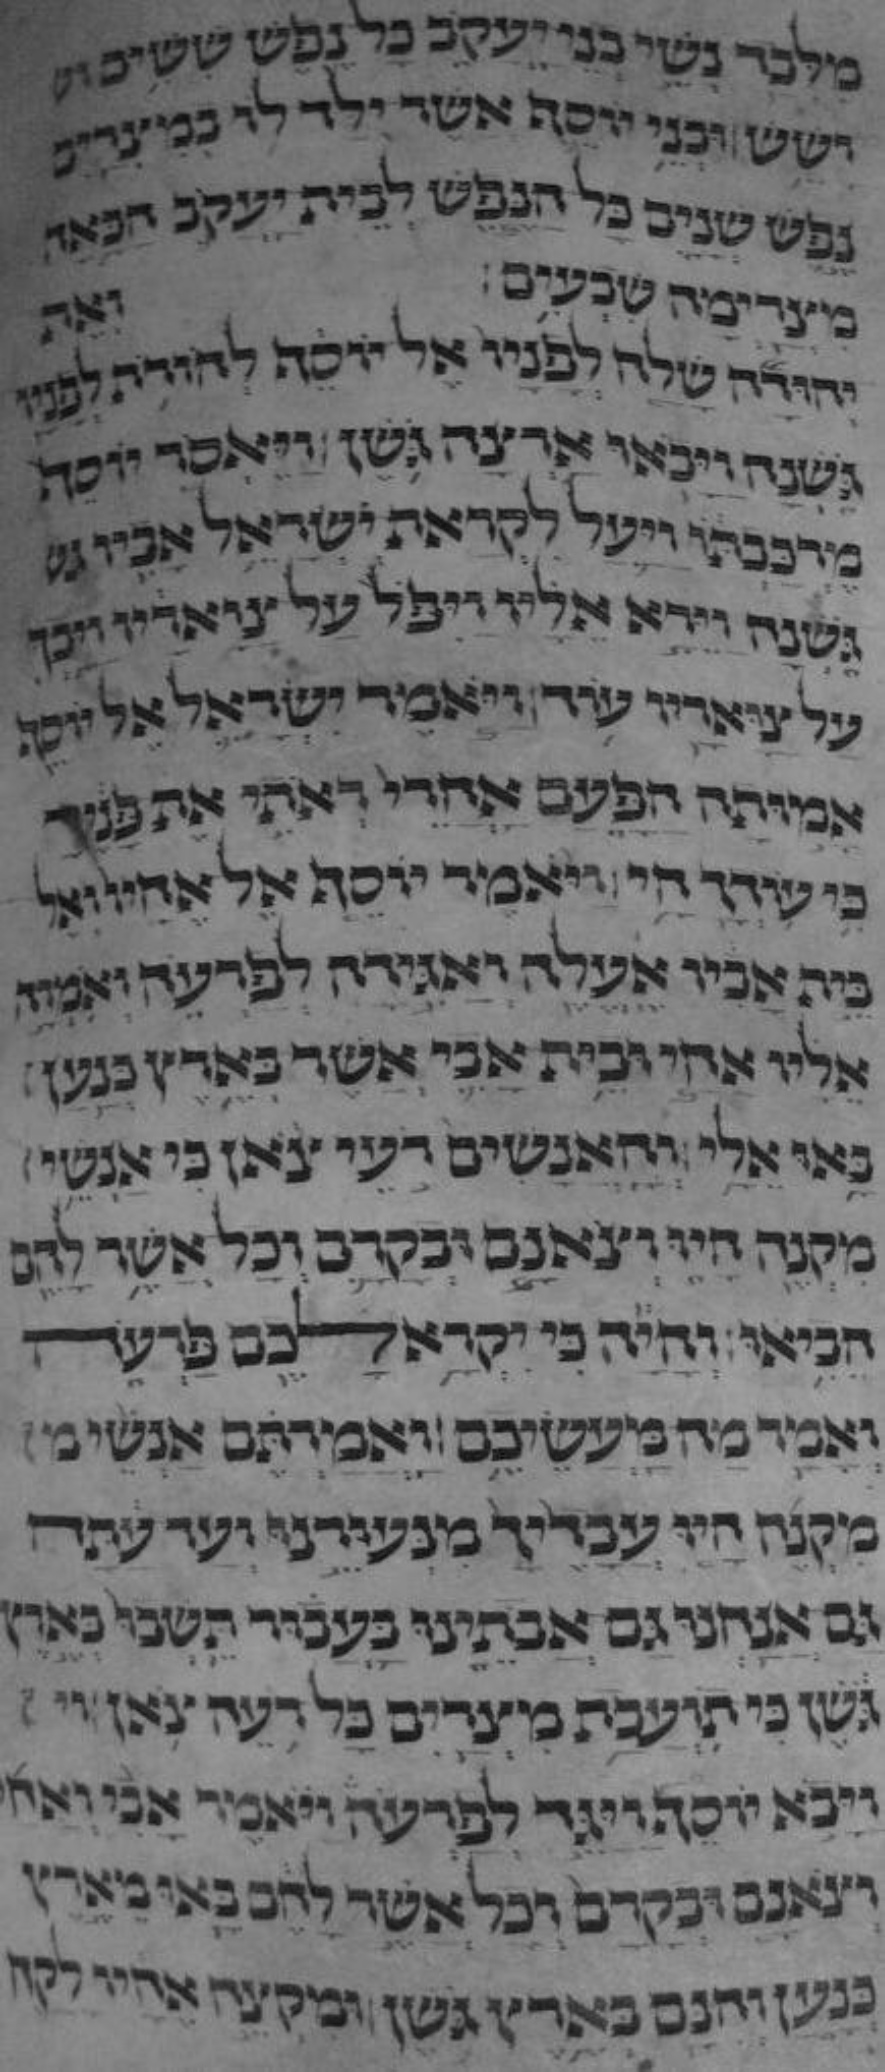 מִלְּבַד נְשֵׁי בְנֵי יַעֲקֹב כָּל נֶפֶשׁ שִׁשִּׁים וש
וָשֵׁשׁ׃ וּבְנֵי יוֹסֵף אֲשֶׁר יֻלַּד לוֹ בְמִצְרַיִם
נֶפֶשׁ שְׁנָיִם כָּל הַנֶּפֶשׁ לְבֵית יַעֲקֹב הַבָּאָה
מִצְרַיְמָה שִׁבְעִים׃ וְאֶת
יְהוּדָה שָׁלַח לְפָנָיו אֶל יוֹסֵף לְהוֹרֹת לְפָנָיו
גֹּשְׁנָה וַיָּבֹאוּ אַרְצָה גֹּשֶׁן׃ וַיֶּאְסֹר יוֹסֵף
מֶרְכַּבְתּוֹ וַיַּעַל לִקְרַאת יִשְׂרָאֵל אָבִיו גש
גֹּשְׁנָה וַיֵּרָא אֵלָיו וַיִּפֹּל עַל צַוָּארָיו וַיֵּבְךְּ
עַל צַוָּארָיו עוֹד׃ וַיֹּאמֶר יִשְׂרָאֵל אֶל יוֹסֵף
אָמוּתָה הַפָּעַם אַחֲרֵי רְאֹתִי אֶת פָּנֶיךָ
כִּי עוֹדְךָ חָי׃ וַיֹּאמֶר יוֹסֵף אֶל אֶחָיו וְאֶל
בֵּית אָבִיו אֶעֱלֶה וְאַגִּידָה לְפַרְעֹה וְאֹמְרָה
אֵלָיו אַחַי וּבֵית אָבִי אֲשֶׁר בְּאֶרֶץ כְּנַעַן
בָּאוּ אֵלָי׃ וְהָאֲנָשִׁים רֹעֵי צֹאן כִּי אַנְשֵׁי
מִקְנֶה הָיוּ וְצֹאנָם וּבְקָרָם וְכָל אֲשֶׁר לָהֶם
הֵבִיאוּ׃ וְהָיָה כִּי יִקְרָא לָכֶם פַּרְעֹה
וְאָמַר מַה מַּעֲשֵׂיכֶם׃ וַאֲמַרְתֶּם אַנְשֵׁי מ
מִקְנֶה הָיוּ עֲבָדֶיךָ מִנְּעוּרֵנוּ וְעַד עַתָּה
גַּם אֲנַחְנוּ גַּם אֲבֹתֵינוּ בַּעֲבוּר תֵּשְׁבוּ בְּאֶרֶץ
גֹּשֶׁן כִּי תוֹעֲבַת מִצְרַיִם כָּל רֹעֵה צֹאן׃ וי
וַיָּבֹא יוֹסֵף וַיַּגֵּד לְפַרְעֹה וַיֹּאמֶר אָבִי וְאַחַי
וְצֹאנָם וּבְקָרָם וְכָל אֲשֶׁר לָהֶם בָּאוּ מֵאֶרֶץ
כְּנָעַן וְהִנָּם בְּאֶרֶץ גֹּשֶׁן׃ וּמִקְצֵה אֶחָיו לָקַח